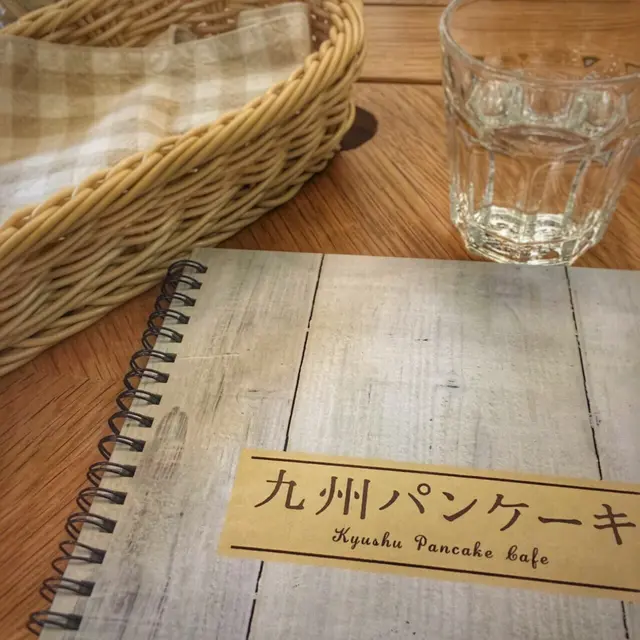 九州パンケーキ
Kyushu Pancake Cafe